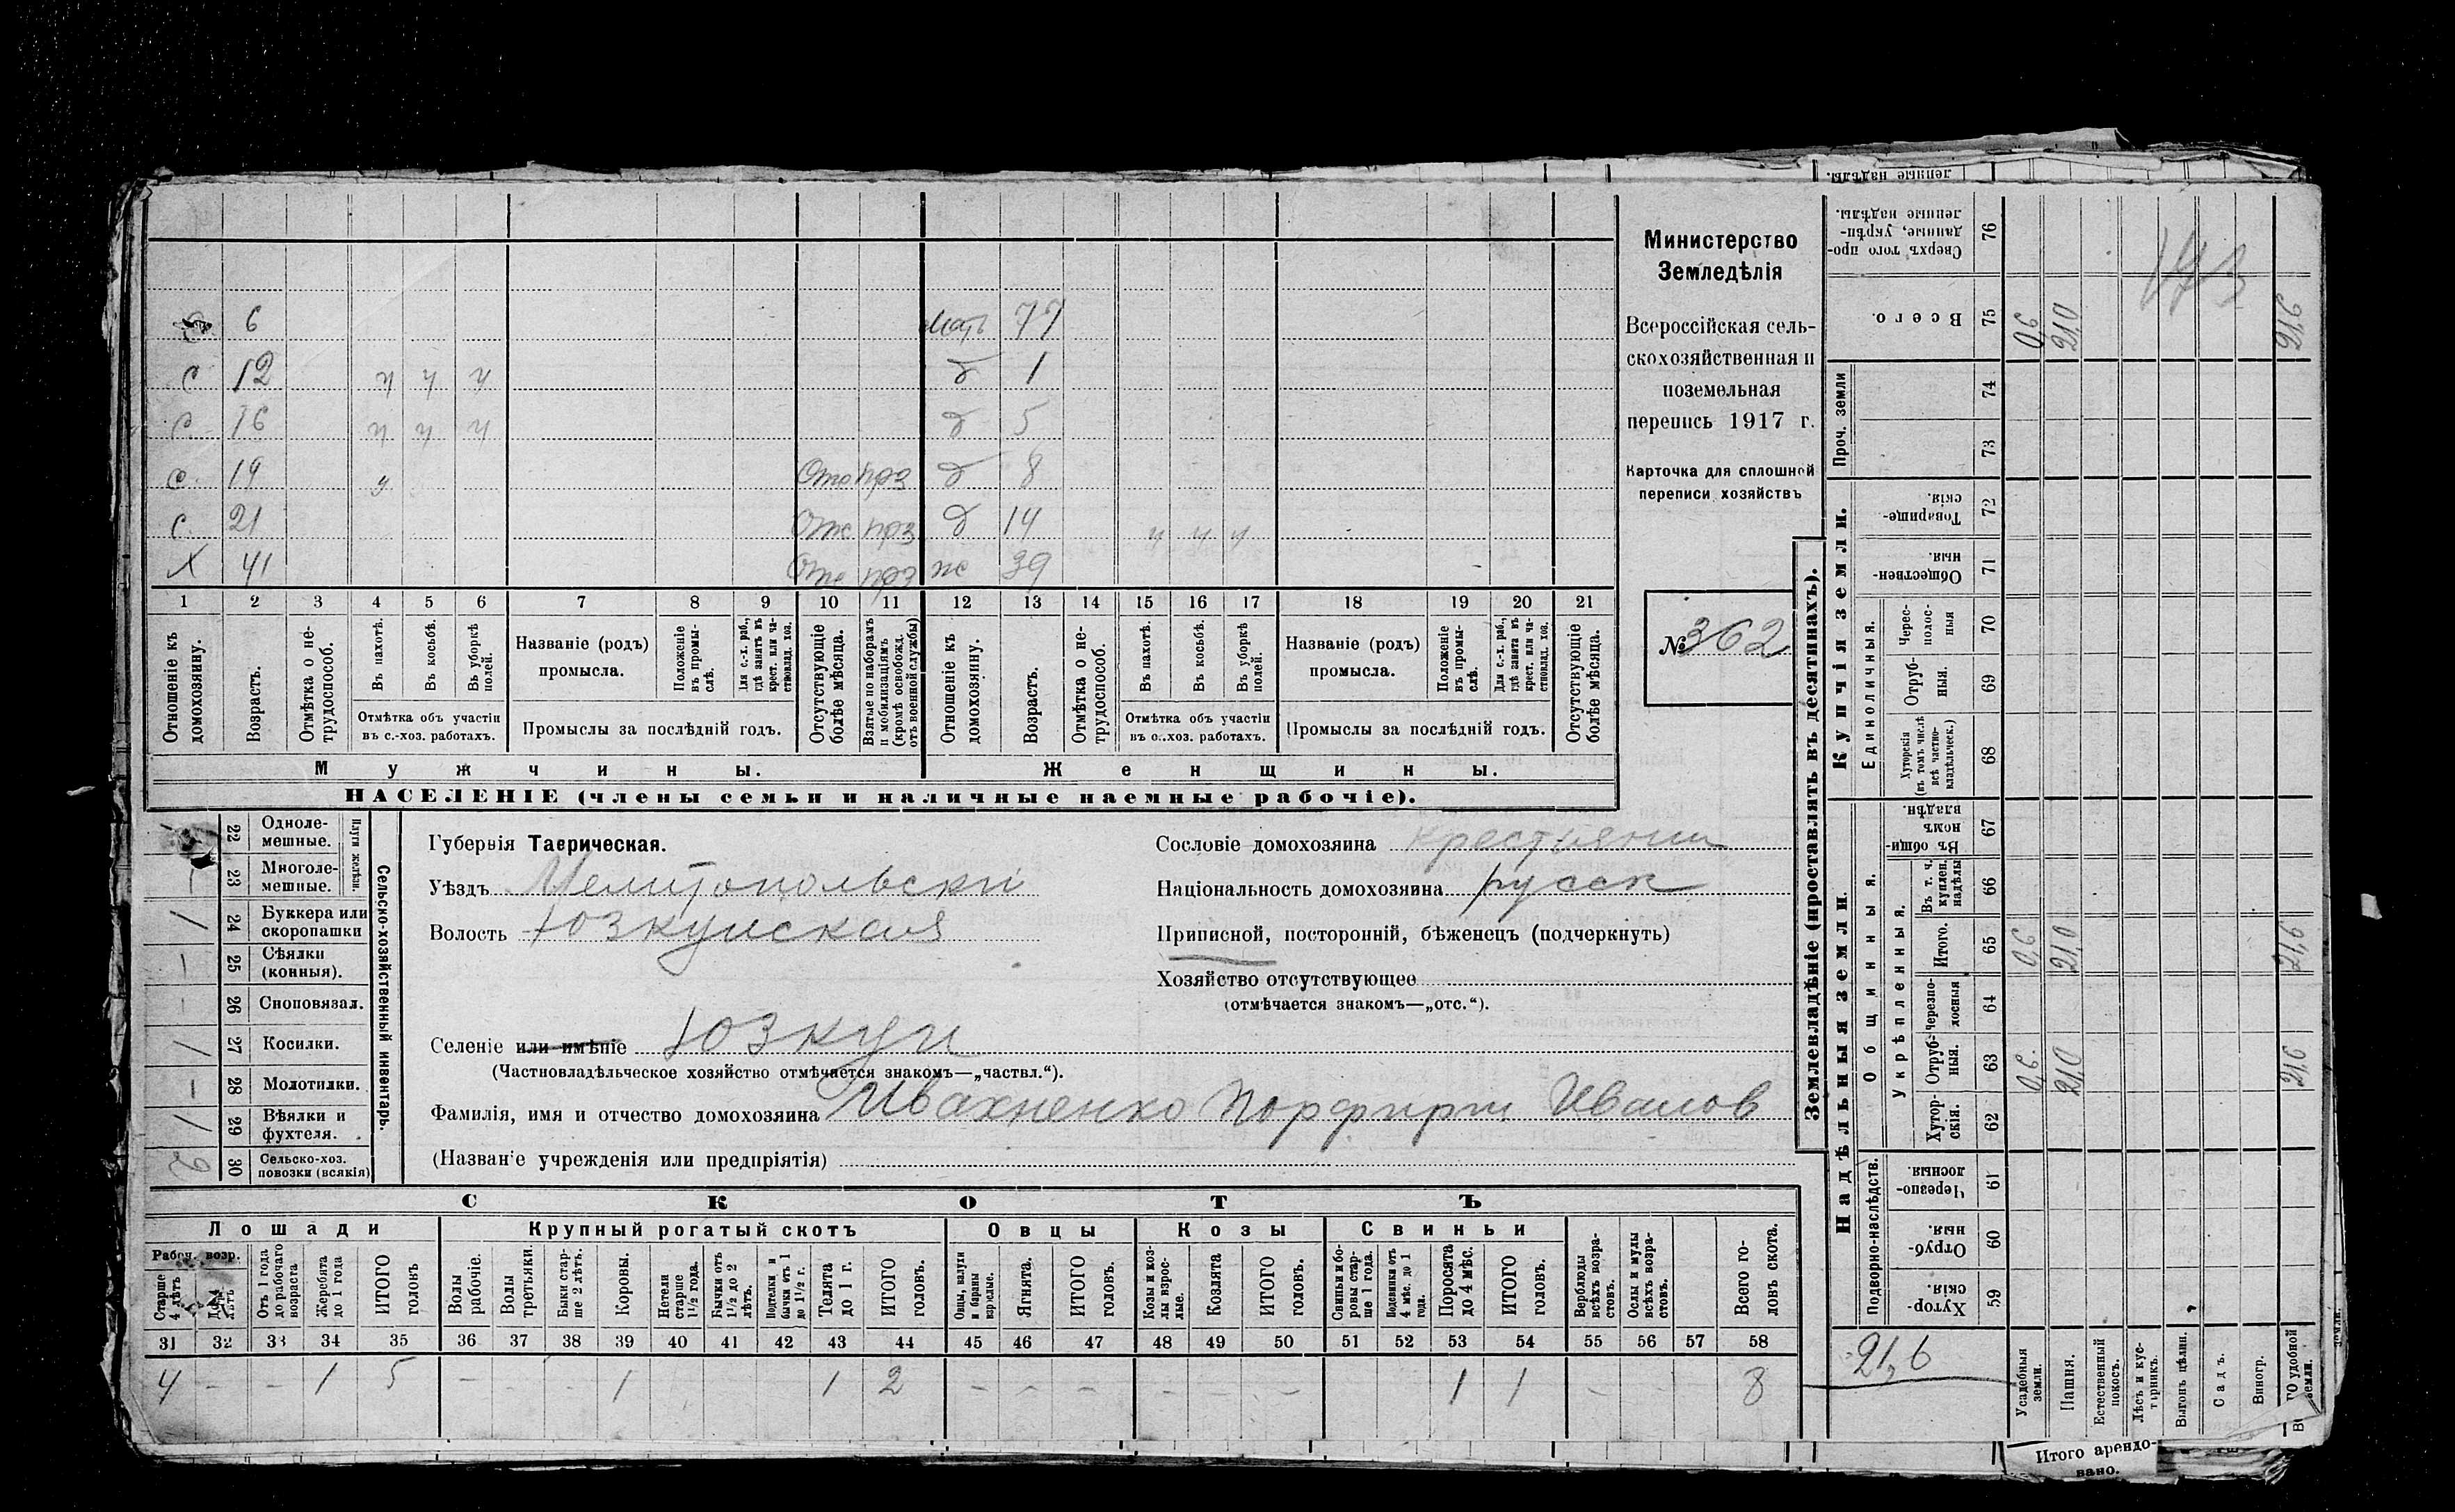 6 мать 77
с 12 ч ч ч д 1
с 16 ч ч ч д 5
с. 19 ч прз д 8
с. 21 Отс прз д 14 ч ч ч
Х 41 прз ж 39
1 2 3 4 5 6 7 8 9 10 11 12 13 14 15 16 17 18 19 20 21
Отношеніе къ домохозяину.
Возрастъ.
Отмѣтка о нетрудоспособ.
Въ пахотѣ.
Въ косьбѣ.
Въ уборкѣ полей.
Отмѣтка объ участіи
въ с.-хоз. работахъ.
Названіе (родъ)
промысла.
Положеніе въ промыслѣ.
Для с.-х. раб., гдѣ занятъ въ крест. или частновлад. хоз.
Промыслы за послѣдній годъ.
Отсутствующіе болѣе мѣсяца.
Взятые по наборамъ и мобилизаціямъ (кромѣ освобожд. отъ военной службы)
Отношеніе къ домохозяину.
Возрастъ.
Отмѣтка о нетрудоспособ.
Въ пахотѣ.
Въ косьбѣ.
Въ уборкѣ полей.
Отмѣтка объ участіи
въ с.-хоз. работахъ.
Названіе (родъ)
промысла.
Положеніе въ промыслѣ.
Для с.-х. раб., гдѣ занята въ крест. или частновлад. хоз.
Промыслы за послѣдній годъ.
Отсутствующіе болѣе мѣсяца.
Мужчины. Женщины.
НАСЕЛЕНІЕ (члены семьи и наличные наемные рабочіе).
Министерство
Земледѣлія
Всероссійская сель-
скохозяйственная и
поземельная
перепись 1917 г.
Карточка для сплошной
переписи хозяйствъ
№ 362
22 Одноле-
мешные.
— 23 Многоле-
мешные.
Плуги желѣзн.
1 24 Буккера или
скоропашки
— 25 Сѣялки
(конныя).
— 26 Сноповязал.
1 27 Косилки.
— 28 Молотилки.
1 29 Вѣялки и
фухтеля.
2 30 Сельско-хоз.
повозки (всякія)
Сельско-хозяйственный инвентарь.
Губернія Таврическая.
Уѣздъ Мелитопольскі
Волость Юзкуйская
Селеніе или имѣніе Юзкуи
(Частновладѣльческое хозяйство отмѣчается знакомъ—„частвл.“).
Фамилія, имя и отчество домохозяина Ивахненко Порфирій Иванов
(Названіе учрежденія или предпріятія)
Сословіе домохозяина крестьянин
Національность домохозяина русск
Приписной, посторонній, бѣженецъ (подчеркнуть)
Хозяйство отсутствующее
(отмѣчается знакомъ—„отс.“).
СКОТЪ
Лошади Крупный рогатый скотъ Овцы Козы Свиньи
Рабоч. возр.
Старше 4 лѣтъ
Отъ 1 года до рабочаго возраста
Жеребята до 1 года
ИТОГО головъ
Волы рабочіе.
Волы третьяки.
Быки старше 2 лѣтъ.
Коровы.
Нетели старше 1½ года.
Бычки отъ 1½ до 2 лѣтъ.
Подтелки и бычки отъ 1 до 1½ г.
Телята до 1 г.
ИТОГО головъ.
Овцы, валухи и бараны взрослые.
Ягнята.
ИТОГО головъ.
Козы и козлы взрослые.
Козлята
ИТОГО головъ.
Свиньи и боровы старше 1 года.
Подсвинки отъ 4 мѣс. до 1 года.
Поросята до 4 мѣс.
ИТОГО головъ.
Верблюды всѣхъ возрастовъ.
Ослы и мулы всѣхъ возрастовъ.
Всего головъ скота.
31 32 33 34 35 36 37 38 39 40 41 42 43 44 45 46 47 48 49 50 51 52 53 54 55 56 57 58
4 – – 1 5 – – – 1 1 2 – – – – – – 1 1 – – 8
Землевладѣніе (проставлять въ десятинахъ).
ленные надѣлы.
Сверхъ того проданные, укрѣпленные надѣлы. 76
173
Всего. 75 0,6 21,0 21,6
Проч. земли 74
73
Купчія земли.
Товарищескія. 72
Общественныя. 71
Единоличныя.
Чересполосныя 70
Отрубныя. 69
Хуторскія (въ томъ числѣ всѣ частновладѣльческ.) 68
Надѣльныя земли.
Общинныя.
Въ общинномъ владѣн. 67
Укрѣпленныя.
Въ т. ч. куплен. надѣлы 66
Итого. 65 0,6 21,0 21,6
Черезполосныя 64
Отрубныя. 63 0,6. 21,0 21,6
Хуторскія. 62
Подворно-наслѣдств.
Черезполосныя. 61
Отрубныя. 60
Хуторскія. 59
21,6
Усадебныя земли.
Пашня.
Естественный покосъ.
Лѣсъ и кустарникъ.
Выгонъ цѣлин.
Садъ.
Виногр.
удобной земли.
Итого арендо-
вано.